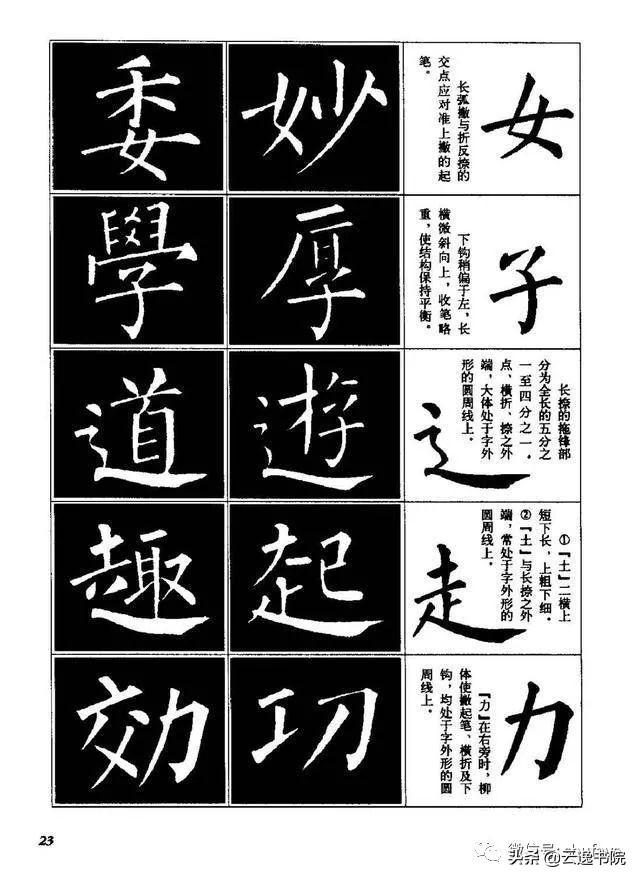 女
长弧撇与折反捺的
交点应对准上撇的起
笔。
妙
委
子
下钩稍偏于左，长
横微斜向上，收笔略
重，使结构保持平衡。
厚
學
辶
长捺的拖锋部
分为全长的五分之
一至四分之一。
点、横折、捺之外
端，大体处于字外
形的圆周线上。
遊
道
走
①『土』二横上
短下长，上粗下细。
②『土』与长捺之外
端，常处于字外形的
圆周线上。
起
趣
力
『力』在右旁时，柳
体使撇起笔、横折及下
钩，均处于字外形的圆
周线上。
功
効
23
微信号:
头条@云逸书院